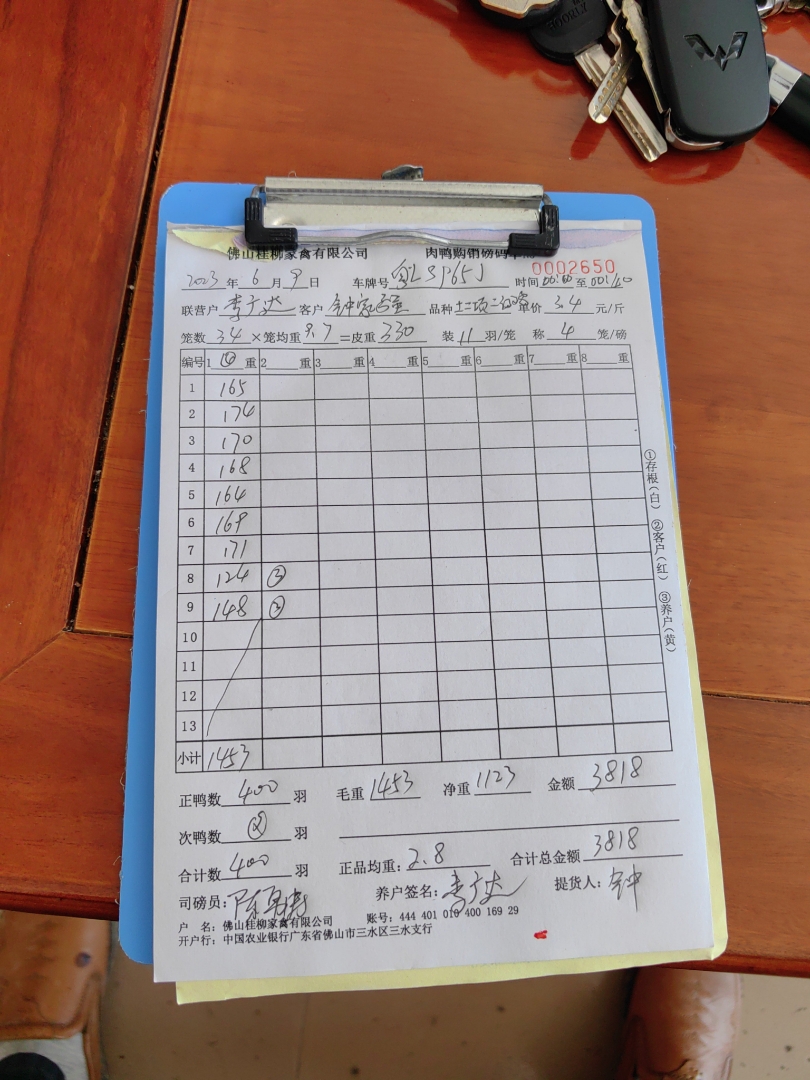 佛山桂柳家禽有限公司 肉鸭购销磅码单
0002650
2023 年 6 月 9 日 车牌号 时间 00:00 至 00:40
联营户 李广达 客户 钟 品种 单价 3.4 元/斤
笼数 34 ×笼均重 9.7 =皮重 330 装 11 羽/笼 称 4 笼/磅
编号 1 ④ 重 2 重 3 重 4 重 5 重 6 重 7 重 8 重
1 165
2 174
3 170
4 168
5 164
6 169
7 171
8 124 ③
9 148
10
11
12
13
小计 1453
正鸭数 400 羽 毛重 1453 净重 1123 金额 3818
次鸭数 羽
合计数 400 羽 正品均重: 2.8 合计总金额 3818
司磅员: 陈 养户签名: 李广达 提货人: 钟
户 名: 佛山桂柳家禽有限公司 账号: 444 401 010 400 169 29
开户行: 中国农业银行广东省佛山市三水区三水支行
①存根(白) ②客户(红) ③养户(黄)